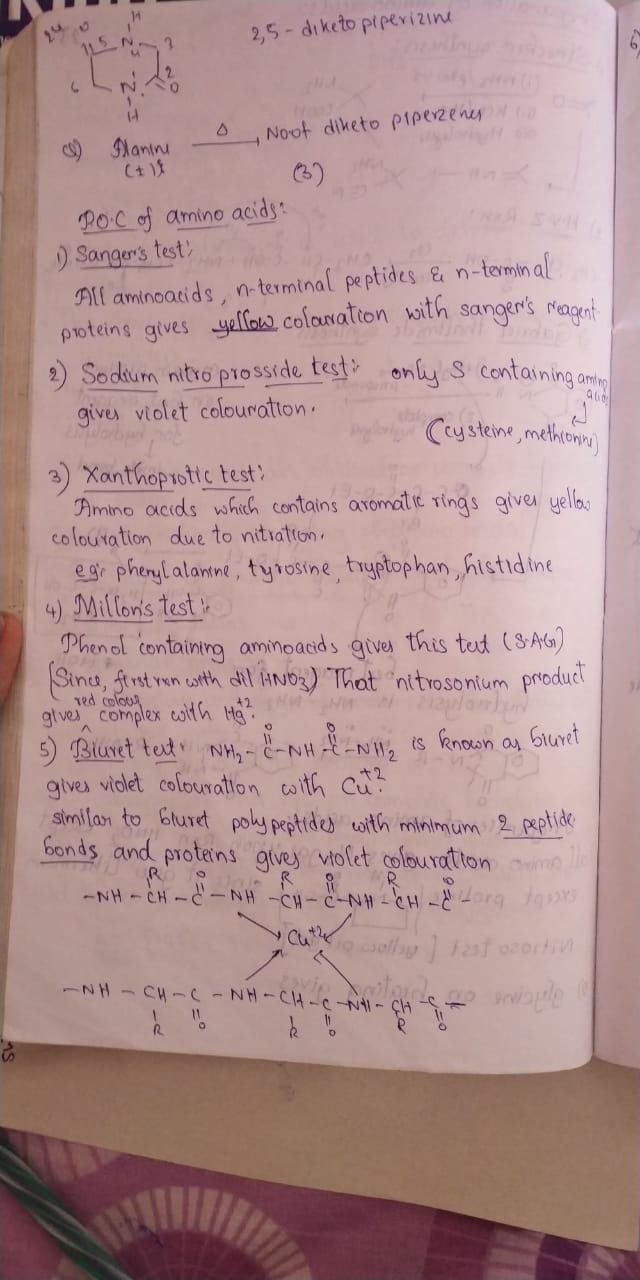 2,5-diketo piperizine
H
O
5 N 3
4
6 N 2 O
H
Q) Alanine Δ No of diketo piperzenes
(±) (3)
P.O.C of amino acids:
1) Sanger's test:
All aminoacids, n-terminal peptides & n-terminal
proteins gives yellow colouration with sanger's reagent.
2) Sodium nitro prosside test: only S containing amino acids
gives violet colouration.
(cysteine, methionine)
3) Xanthoprotic test:
Amino acids which contains aromatic rings gives yellow
colouration due to nitration.
eg: phenylalanine, tyrosine, tryptophan, histidine
4) Millon's test:
Phenol containing aminoacids gives this test
(Since, first rxn with dil HNO3) That nitrosonium product
gives red colour complex with Hg+2.
5) Biuret test: NH2-C-NH-C-NH2 is known as biuret
O O
gives violet colouration with Cu+2.
similar to biuret polypeptides with minimum 2 peptide
bonds and proteins gives violet colouration
R O R O R O
-NH-CH-C-NH-CH-C-NH-CH-C-
Cu+2
-NH-CH-C-NH-CH-C-NH-CH-C-
R O R O R O